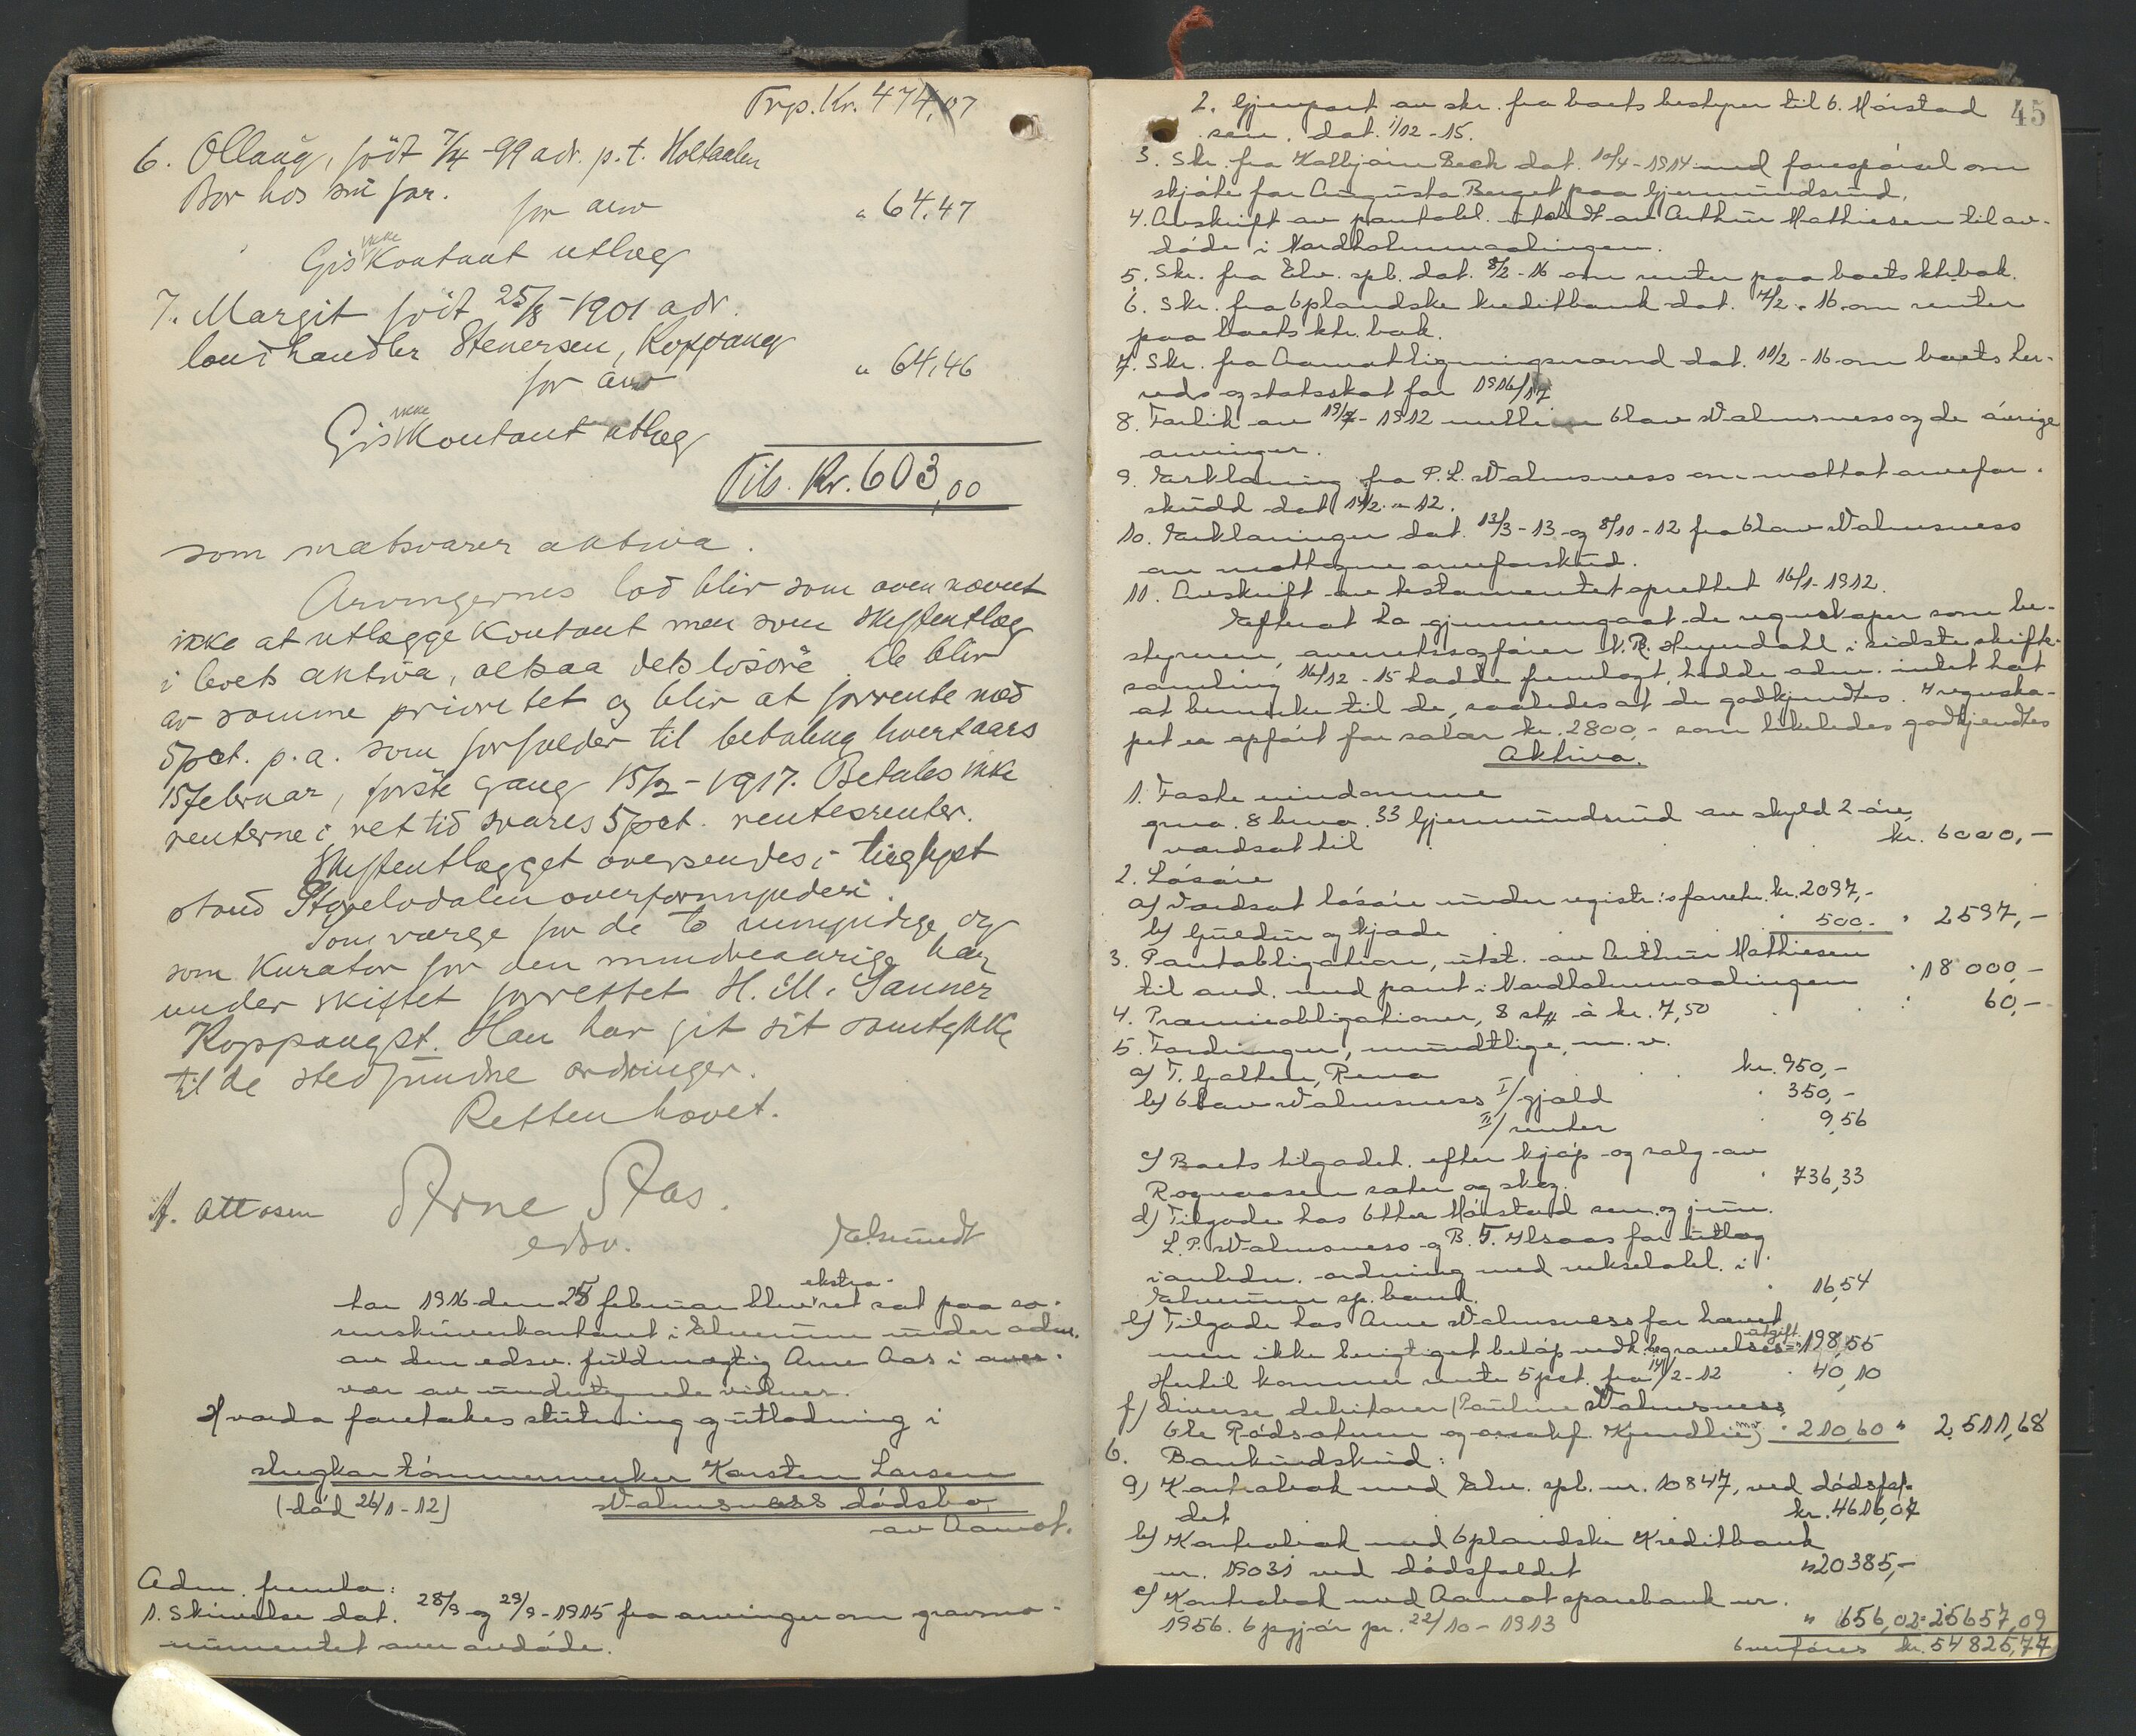 Trp. Kr. 474,07
6. Ollaug, född 7/4 -99 adr. p.t. Holtaalen
Bor hos sin far.
for arv " 64,47
Gis ikke Kontant utlæg
7. Margit född 25/8 - 1901 adr.
landhandler Stenersen, Koppang
for arv " 64,46
Gis ikke Kontant utlæg
Tils. Kr. 603,00
som motsvarer aktiva.
Arvingernes lod blir som oven nævnt
ikke at utlægge Kontant men som skifteutlæg
i boets aktiva, altsaa dets løsøre. De blir
av samme prioritet og blir at forrente med
5 pct. p.a. som forfalder til betaling hvert aars
15 februar, første gang 15/2 - 1917. Betales ikke
renterne i ret tid svares 5 pct. rentesrenter.
Skifteutlægget oversendes i tinglyst
stand Storelvdalen overformynderi.
Som værge for de to umyndige og
som Kurator for den mindreaarige har
under skiftet forrettet H. M. Sanner
Koppangst. Han har git sit samtykke
til de stedfundne ordninger.
Retten hævet.
A. Attosen Arne Aas.
edsv.
Aar 1916 den 25 februar blev ekstra-ret sat paa so-
renskriverkontoret i Elverum under adm.
av den edsv. fuldmægtig Arne Aas i over-
vær av undertegnede vidner.
Hvorda foretakes slutning og utlodning i
ungkar tömmermerker Karsten Larsen
(död 26/1 - 12) Valmsness dödsbo
av Aamot.
Adm. fremla:
1. Skrivelse dat. 28/9 og 29/9 - 1915 fra arvinger om gravmo-
numentet over avdöde.
45
2. Gjenpart av skr. fra boets bestyrer til O. Mörstad
sen. dat. 1/12 - 15.
3. Skr. fra Kolbjörn Beck dat. 10/4 - 1914 med forespörsel om
skjöte for Augusta Berget paa Gjermundsrud.
4. Avskrift av pantobl. utstedt av Arthur Mathiesen til av-
döde i Nordholmmaalingen.
5. Skr. fra Elv. spb. dat. 8/2 - 16 om renter paa boets ktr.bok.
6. Skr. fra Oplandske kreditbank dat. 7/2 - 16 om renter
paa boets ktr. bok.
7. Skr. fra Aamot ligningsnævnd dat. 11/2 - 16 om boets her-
reds og statsskat for 1916/17
8. Forlik av 19/7 - 1912 mellem Olav Valmsness og de övrige
arvinger.
9. Erklæring fra P. L. Valmsness om mottat arvefor-
skudd dat 14/2 - 12.
10. Erklæringer dat. 13/3 - 13 og 8/10 - 12 fra Olav Valmsness
om mottagne arveforskud.
11. Avskrift av testamentet oprettet 16/1 - 1912.
Efterat ha gjennemgaat de regnskaper som be-
styreren, overretssagförer N. R. Heyerdahl i sidste skifte-
samling 16/12 - 15 hadde fremlagt, hadde adm. intet hat
at bemerke til de, saaledes at de godkjendtes. I regnska-
pet er opfört for salær kr. 2800,- som likeledes godkjendtes
Aktiva.
1. Faste eiendomme
grno. 8 brno. 33 Gjermundsrud av skyld 2 öre,
værdsat til kr. 6000,-
2. Lösöre
a) Værdsat lösöre under registr.:s forretn. kr. 2097,-
b) Guldur og kjæde " 500.- " 2597,-
3. Pantobligation, utst. av Arthur Mathiesen
til avd. med pant i Nordholmmaalingen " 18 000,-
4. Præmieobligationer, 8 stk à kr. 7,50 " 60,-
5. Fordringer, mundtlige, m.v.
a) T. Galten, Rena kr. 950,-
b) Olav Valmsness I/ gjæld " 350,-
II/ renter 9,56
c) Boets tilgodeh. efter kjöp og salg av
Rognaasen sæter og skog. " 736,33
d) Tilgode hos Otter Mörstad sen. og jun.
L. P. Valmsness og B. T. Ilsaas for utlæg
i anledn. ordning med vekselobl. i
Elverum sp. bank. " 16,54
e) Tilgode hos Arne Valmsness for hævet
men ikke berigtiget belöp vedk. begravelses-utgift. " 198,55
Hertil kommer rente 5 pct. fra 14/2 - 12 " 40,10
f) Diverse debitorer (Pauline Valmsness
Ole Rödsætren og arvef. Kjendlie m.v.) " 210,60 " 2.511,68
6. Bankindskud:
a) Kontrabok med Elv. spb. nr. 10847, ved dödsfal-
det kr. 4616,07
b) Kontrabok med Oplandske Kreditbank
nr. 19031 ved dödsfaldet " 20385,-
c) Kontrabok med Aamot sparebank nr.
1956. Opgjör pr. 22/10 - 1913 " 656,02 = 25657,09
Overföres kr. 54825,77